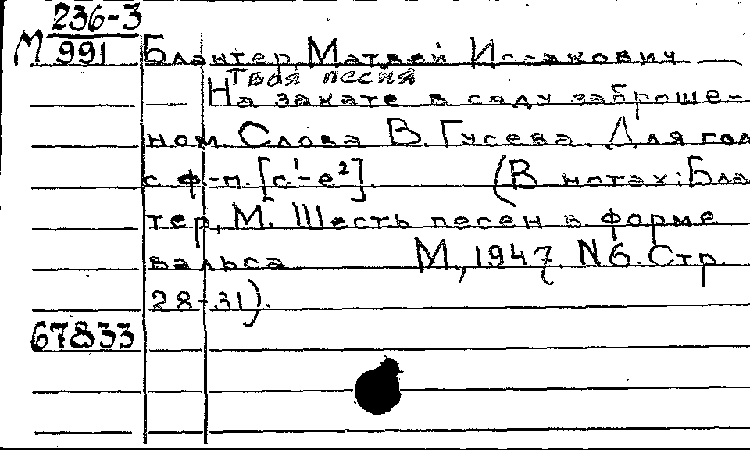 236-3
М 991 Блантер, Матвей Исаакович
Твоя песня
На закате в саду заброше-
ном. Слова В. Гусева. Для гол
с ф-п. [c¹-e²]. (В нотах: Бла
тер, М. Шесть песен в форме
вальса М., 1947. N6. Стр.
28-31).
67833